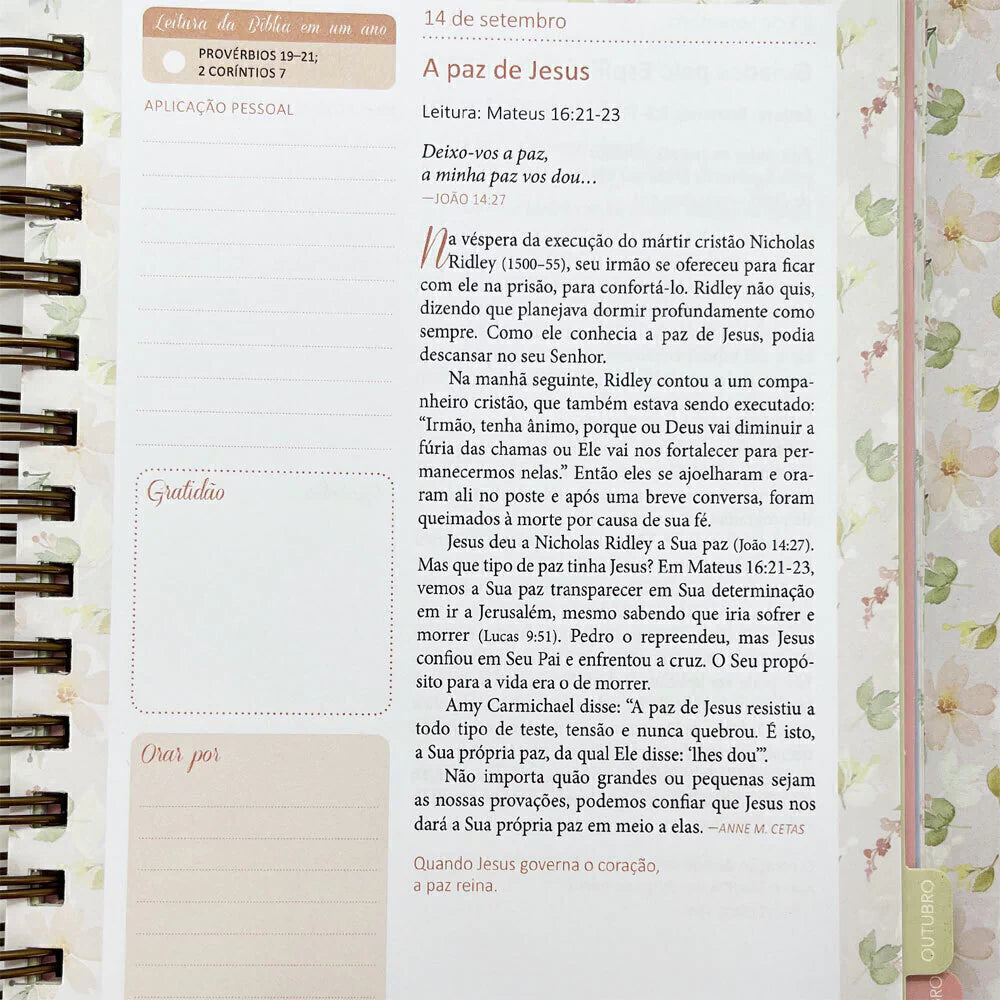 Leitura da Bíblia em um ano
PROVÉRBIOS 19–21;
2 CORÍNTIOS 7
APLICAÇÃO PESSOAL
Gratidão
Orar por
14 de setembro
A paz de Jesus
Leitura: Mateus 16:21-23
Deixo-vos a paz,
a minha paz vos dou...
—JOÃO 14:27
Na véspera da execução do mártir cristão Nicholas
Ridley (1500–55), seu irmão se ofereceu para ficar
com ele na prisão, para confortá-lo. Ridley não quis,
dizendo que planejava dormir profundamente como
sempre. Como ele conhecia a paz de Jesus, podia
descansar no seu Senhor.
Na manhã seguinte, Ridley contou a um compa-
nheiro cristão, que também estava sendo executado:
“Irmão, tenha ânimo, porque ou Deus vai diminuir a
fúria das chamas ou Ele vai nos fortalecer para per-
manecermos nelas.” Então eles se ajoelharam e ora-
ram ali no poste e após uma breve conversa, foram
queimados à morte por causa de sua fé.
Jesus deu a Nicholas Ridley a Sua paz (João 14:27).
Mas que tipo de paz tinha Jesus? Em Mateus 16:21-23,
vemos a Sua paz transparecer em Sua determinação
em ir a Jerusalém, mesmo sabendo que iria sofrer e
morrer (Lucas 9:51). Pedro o repreendeu, mas Jesus
confiou em Seu Pai e enfrentou a cruz. O Seu propó-
sito para a vida era o de morrer.
Amy Carmichael disse: “A paz de Jesus resistiu a
todo tipo de teste, tensão e nunca quebrou. É isto,
a Sua própria paz, da qual Ele disse: ‘lhes dou’”.
Não importa quão grandes ou pequenas sejam
as nossas provações, podemos confiar que Jesus nos
dará a Sua própria paz em meio a elas. —ANNE M. CETAS
Quando Jesus governa o coração,
a paz reina.
OUTUBRO